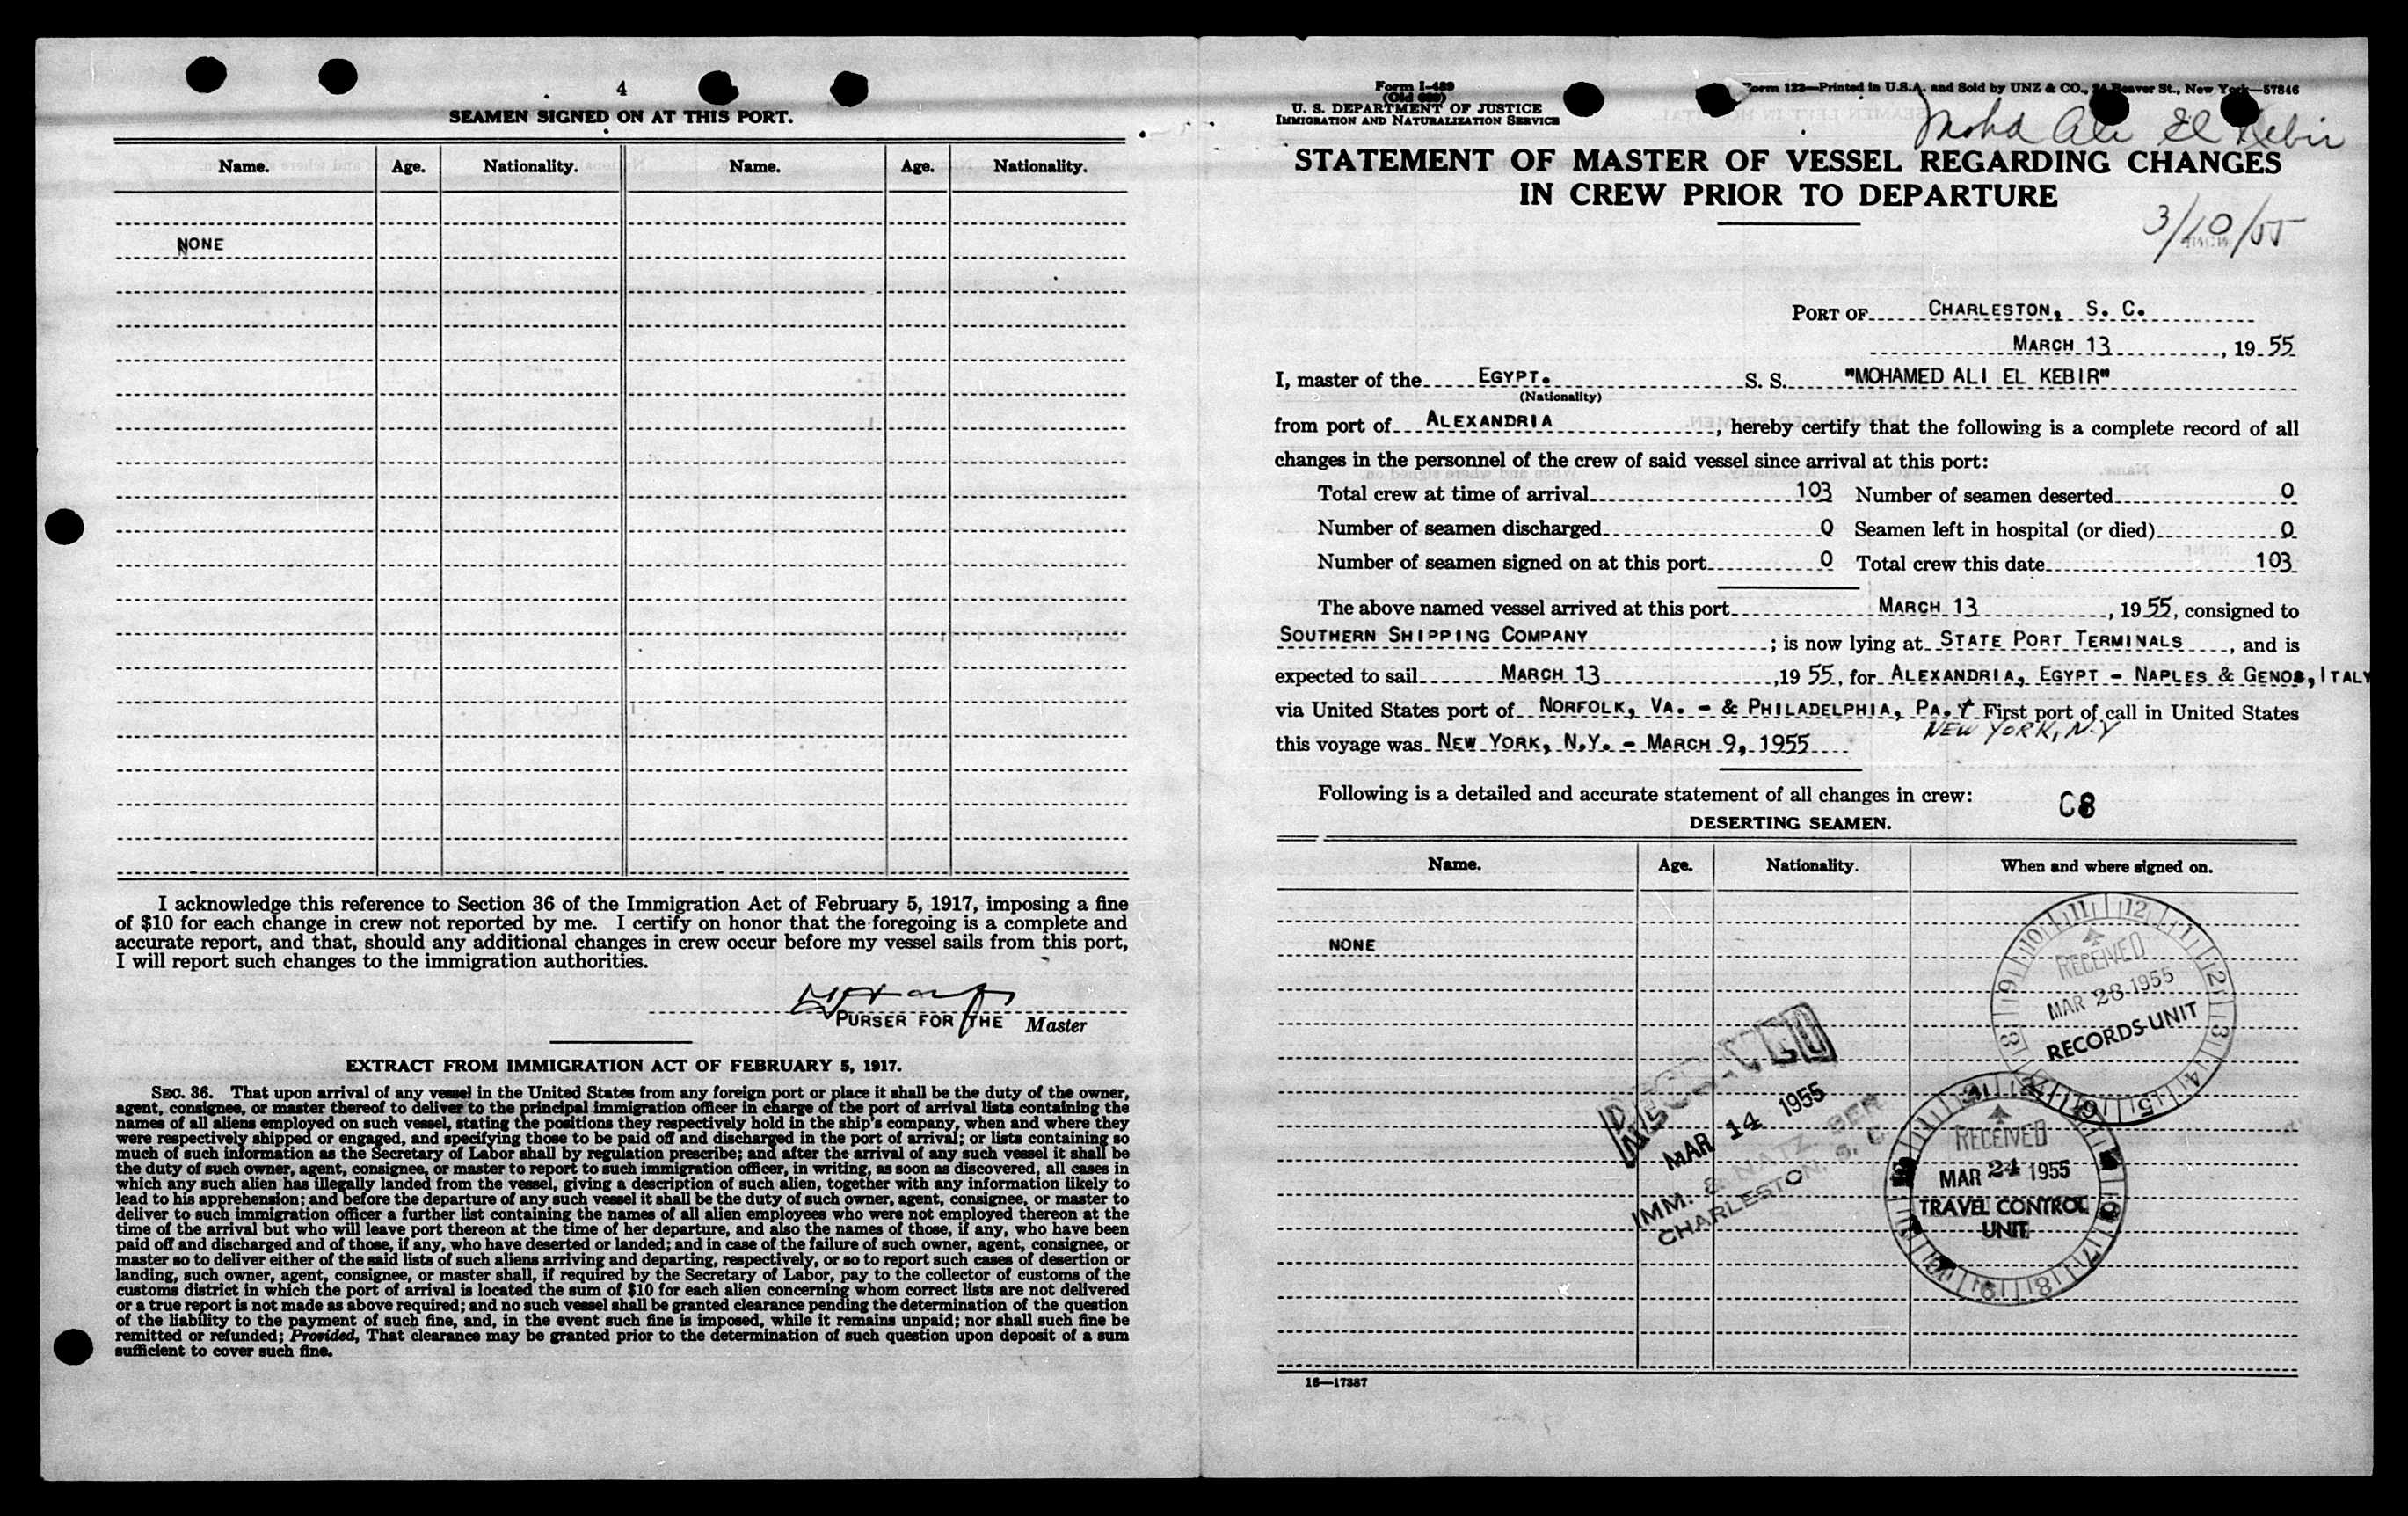 4
SEAMEN SIGNED ON AT THIS PORT.
Name. Age. Nationality. Name. Age. Nationality.
NONE
I acknowledge this reference to Section 36 of the Immigration Act of February 5, 1917, imposing a fine
of $10 for each change in crew not reported by me. I certify on honor that the foregoing is a complete and
accurate report, and that, should any additional changes in crew occur before my vessel sails from this port,
I will report such changes to the immigration authorities.
PURSER FOR THE Master
EXTRACT FROM IMMIGRATION ACT OF FEBRUARY 5, 1917.
SEC. 36. That upon arrival of any vessel in the United States from any foreign port or place it shall be the duty of the owner,
agent, consignee, or master thereof to deliver to the principal immigration officer in charge of the port of arrival lists containing the
names of all aliens employed on such vessel, stating the positions they respectively hold in the ship's company, when and where they
were respectively shipped or engaged, and specifying those to be paid off and discharged in the port of arrival; or lists containing so
much of such information as the Secretary of Labor shall by regulation prescribe; and after the arrival of any such vessel it shall be
the duty of such owner, agent, consignee, or master to report to such immigration officer, in writing, as soon as discovered, all cases in
which any such alien has illegally landed from the vessel, giving a description of such alien, together with any information likely to
lead to his apprehension; and before the departure of any such vessel it shall be the duty of such owner, agent, consignee, or master to
deliver to such immigration officer a further list containing the names of all alien employees who were not employed thereon at the
time of the arrival but who will leave port thereon at the time of her departure, and also the names of those, if any, who have been
paid off and discharged and of those, if any, who have deserted or landed; and in case of the failure of such owner, agent, consignee, or
master so to deliver either of the said lists of such aliens arriving and departing, respectively, or so to report such cases of desertion or
landing, such owner, agent, consignee, or master shall, if required by the Secretary of Labor, pay to the collector of customs of the
customs district in which the port of arrival is located the sum of $10 for each alien concerning whom correct lists are not delivered
or a true report is not made as above required; and no such vessel shall be granted clearance pending the determination of the question
of the liability to the payment of such fine, and, in the event such fine is imposed, while it remains unpaid; nor shall such fine be
remitted or refunded; Provided, That clearance may be granted prior to the determination of such question upon deposit of a sum
sufficient to cover such fine.
Form I-489
(Old 689)
U. S. DEPARTMENT OF JUSTICE
IMMIGRATION AND NATURALIZATION SERVICE
Form 122—Printed in U.S.A. and Sold by UNZ & CO., Beaver St., New York—57846
Mohd Ali El Kebir
STATEMENT OF MASTER OF VESSEL REGARDING CHANGES
IN CREW PRIOR TO DEPARTURE
3/10/55
PORT OF CHARLESTON, S. C.
MARCH 13, 1955
I, master of the EGYPT. S. S. "MOHAMED ALI EL KEBIR"
(Nationality)
from port of ALEXANDRIA, hereby certify that the following is a complete record of all
changes in the personnel of the crew of said vessel since arrival at this port:
Total crew at time of arrival 103 Number of seamen deserted 0
Number of seamen discharged 0 Seamen left in hospital (or died) 0
Number of seamen signed on at this port 0 Total crew this date 103
The above named vessel arrived at this port MARCH 13, 1955, consigned to
SOUTHERN SHIPPING COMPANY; is now lying at STATE PORT TERMINALS, and is
expected to sail MARCH 13, 1955, for ALEXANDRIA, EGYPT - NAPLES & GENOA, ITALY
via United States port of NORFOLK, VA. - & PHILADELPHIA, PA. + First port of call in United States
NEW YORK, N.Y
this voyage was NEW YORK, N.Y. - MARCH 9, 1955
Following is a detailed and accurate statement of all changes in crew: C8
DESERTING SEAMEN.
Name. Age. Nationality. When and where signed on.
NONE
RECEIVED
MAR 28 1955
RECORDS UNIT
RECEIVED
MAR 14 1955
IMM. & NATZ. SER.
CHARLESTON, S. C.
RECEIVED
MAR 24 1955
TRAVEL CONTROL
UNIT
16—17387